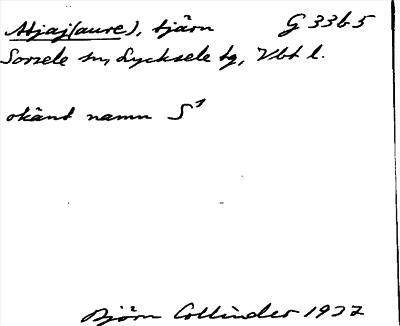 Abjaj(aure), tjärn G 33b5
Sorsele sn, Lycksele tg, Vbt l.
okänt namn S¹
Björn Collinder 1937